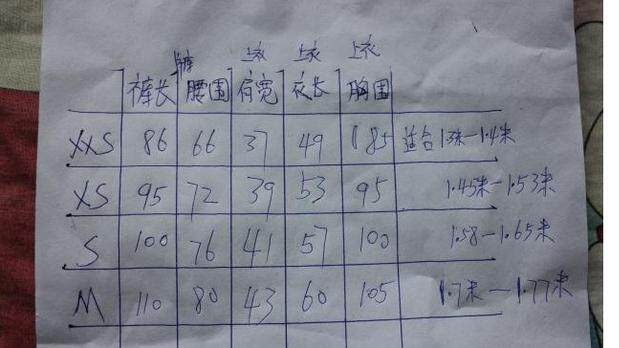 裤 上衣 上衣 上衣
裤长 腰围 肩宽 衣长 胸围
XXS 86 66 37 49 85 适合1.3米-1.4米
XS 95 72 39 53 95 1.45米-1.53米
S 100 76 41 57 100 1.58-1.65米
M 110 80 43 60 105 1.7米-1.77米